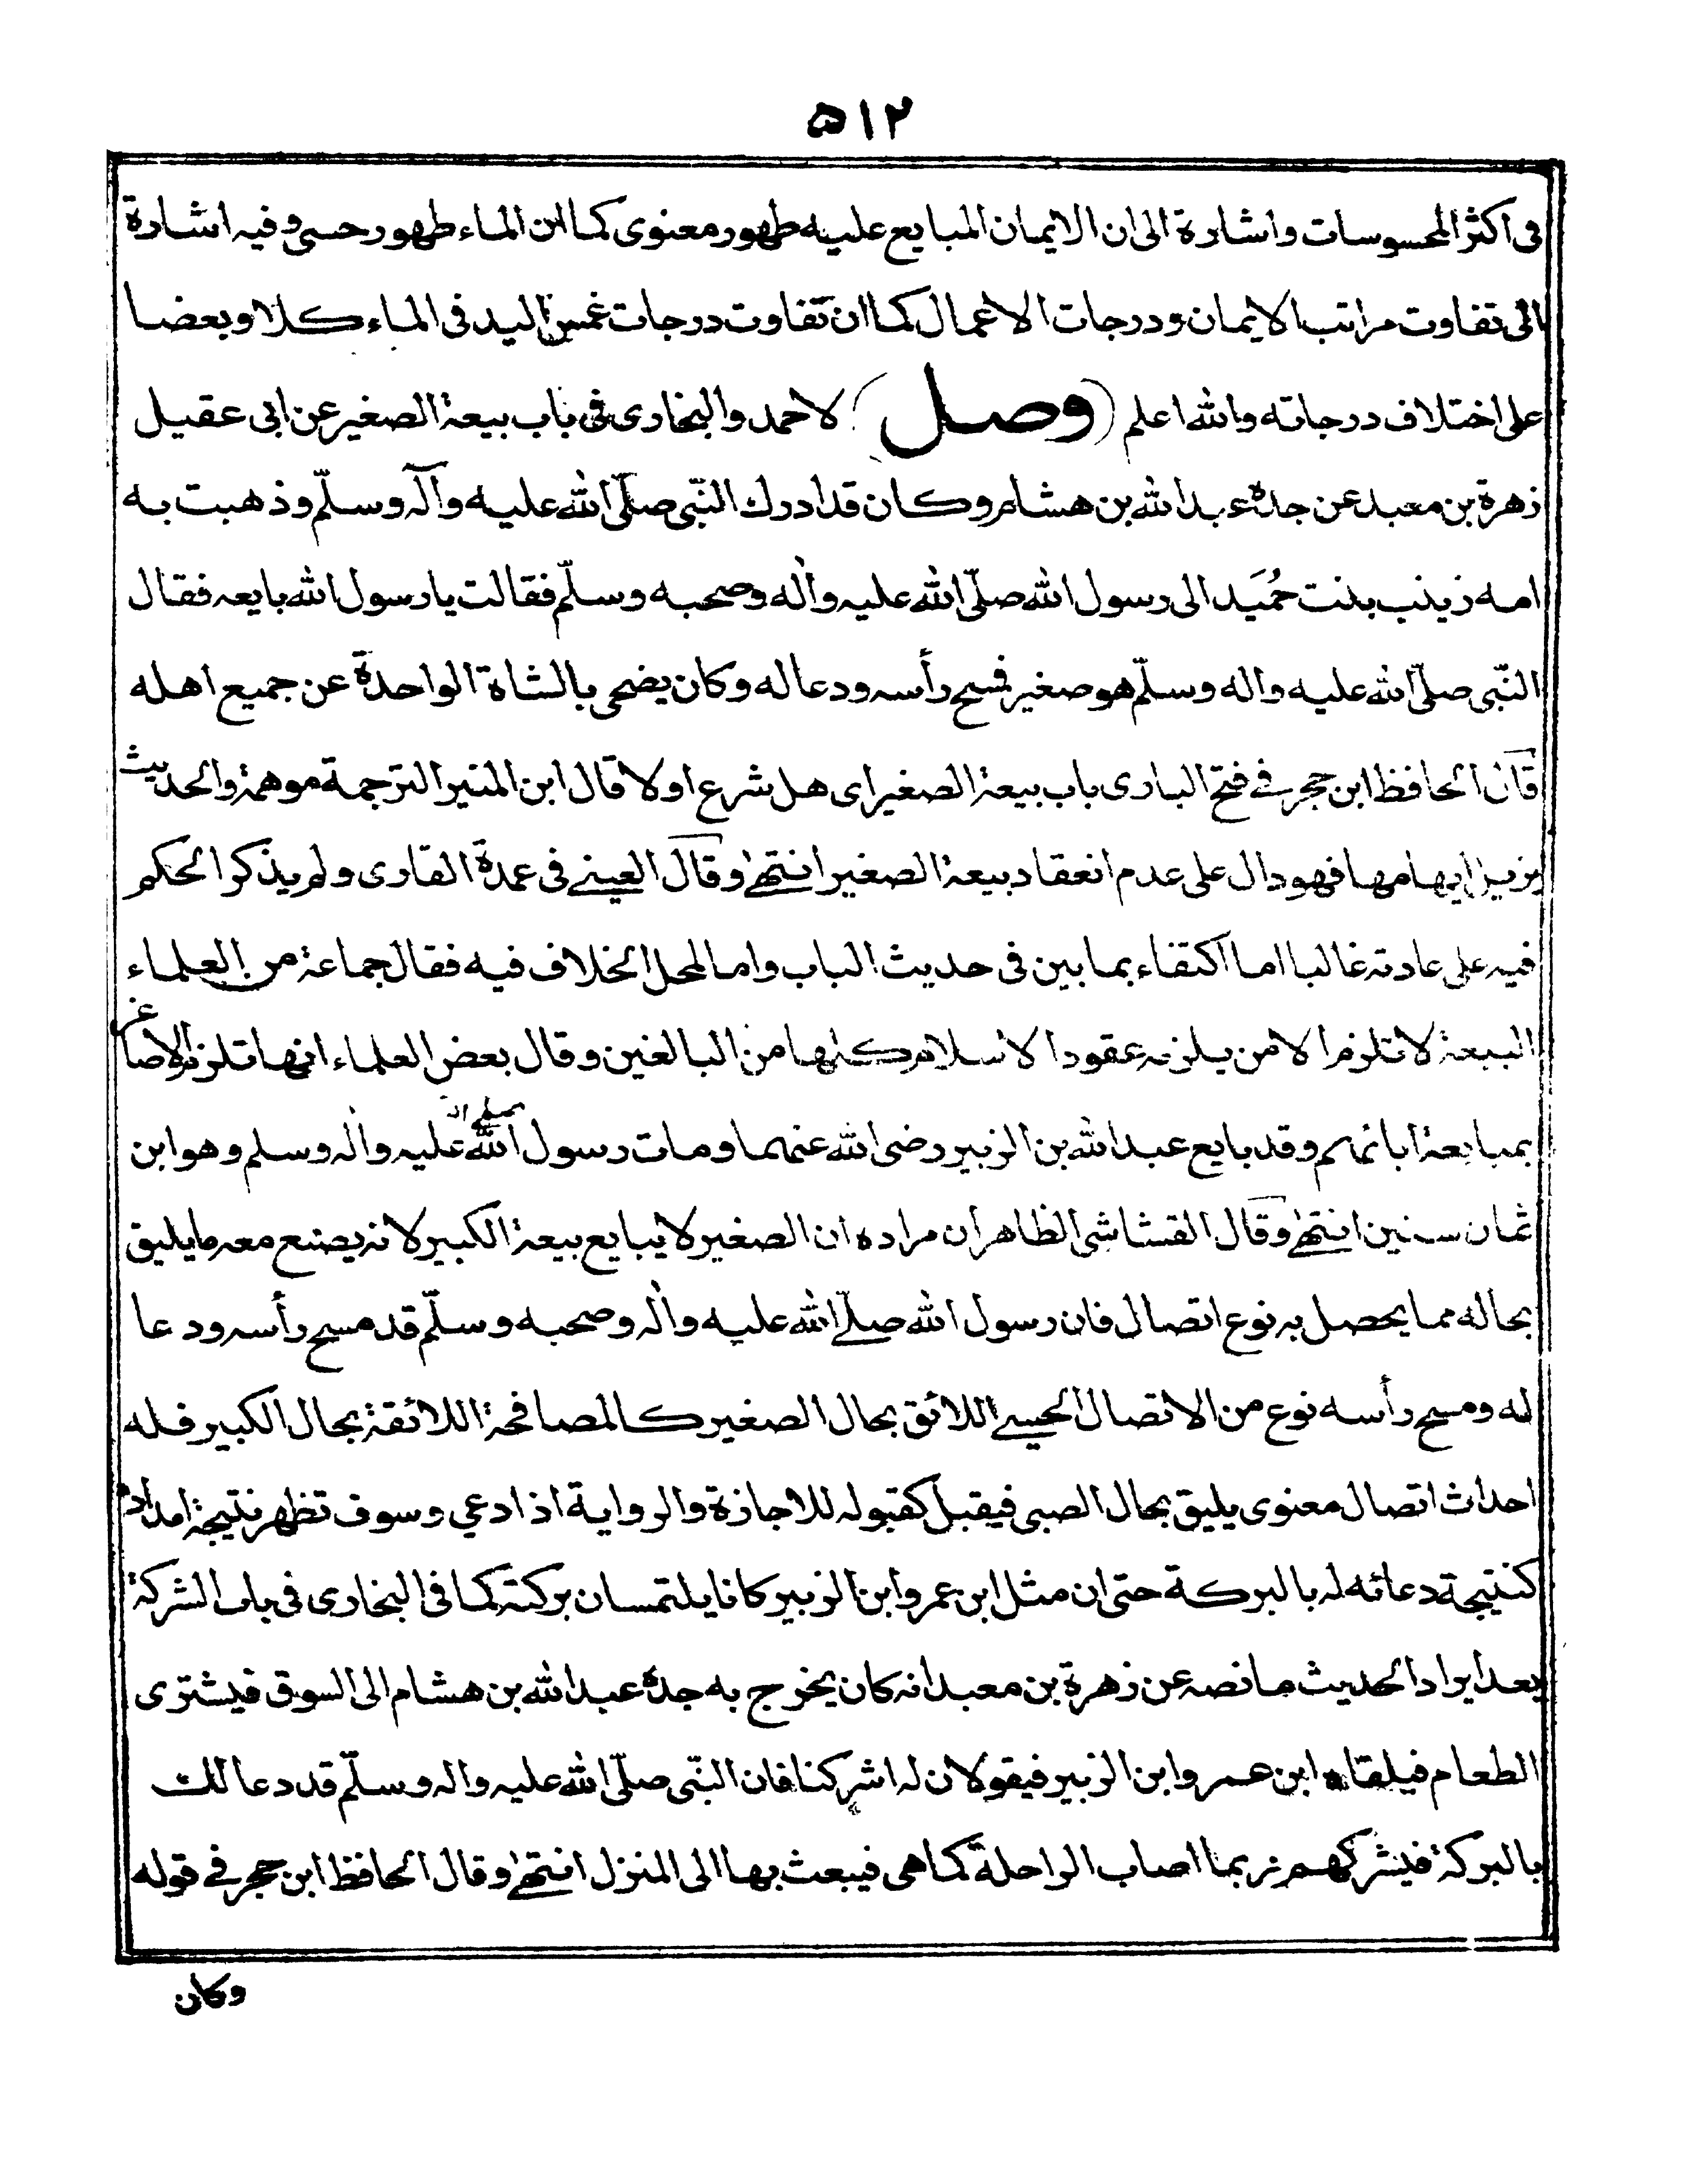 ٥١٢
فى اكثر المحسوسات واشارة الى ان الايمان المبايع عليه طهور معنوى كما ان الماء طهور حسى وفيه اشارة
الى تفاوت مراتب الايمان ودرجات الاعمال كما ان تفاوت درجات غمس اليد فى الماء كلا وبعضا
على اختلاف درجاته والله اعلم (وصل) لاحمد والبخارى فى باب بيعة الصغير عن ابى عقيل
زهرة بن معبد عن جده عبد الله بن هشام وكان قد ادرك النّبى صلّى الله عليه وآله وسلّم وذهبت به
امه زينب بنت حُمَيد الى رسول الله صلّى الله عليه واٰله وصحبه وسلّم فقالت يا رسول الله بايعه فقال
النّبى صلّى الله عليه واله وسلّم هو صغير فمسح رأسه ودعا له وكان يضحى بالشاة الواحدة عن جميع اهله
قال الحافظ ابن حجر فے فتح البارى باب بيعة الصغير اى هل شرع اولا قال ابن المنير الترجمة موهمة والحديث
يزيل ايهامها فهو دال على عدم انعقاد بيعة الصغير انتهےٰ وقال العينے فى عمدة القارى ولم يذكر الحكم
فيه على عادته غالبا اما اكتفاء بما بين فى حديث الباب واما لمحل الخلاف فيه فقال جماعة من العلماء
البيعة لا تلزم الا من يلزمه عقود الاسلام كلها من البالغين وقال بعض العلماء انها تلزم الاصاغر
بمبايعة ابائهم وقد بايع عبد الله بن الزبير رضى الله عنهما ومات رسول الله صلى الله عليه واٰله وسلم وهو ابن
ثمان سنين انتهےٰ وقال القشاشى الظاهر ان مراده ان الصغير لا يبايع بيعة الكبير لانه يصنع معه ما يليق
بحاله مما يحصل به نوع اتصال فان رسول الله صلّے الله عليه واٰله وصحبه وسلّم قد مسح رأسه ودعا
له ومسح رأسه نوع من الاتصال الحسے اللائق بحال الصغير كالمصافحة اللائقة بحال الكبير فله
احداث اتصال معنوى يليق بحال الصبى فيقبل كقبوله للاجازة والرواية اذا دعي وسوف تظهر نتيجة امداده
كنتيجة دعائه له بالبركة حتى ان مثل ابن عمر وابن الزبير كانا يلتمسان بركته كما فى البخارى فى باب الشركة
بعد ايراد الحديث ما نصه عن زهرة بن معبد انه كان يخرج به جده عبد الله بن هشام الى السوق فيشترى
الطعام فيلقاه ابن عمر وابن الزبير فيقولان له اشركنا فان النّبى صلّى الله عليه واله وسلّم قد دعا لك
بالبركة فيشركهم فربما اصاب الراحلة كما هى فيبعث بها الى المنزل انتهےٰ وقال الحافظ ابن حجر فے قوله
وكان